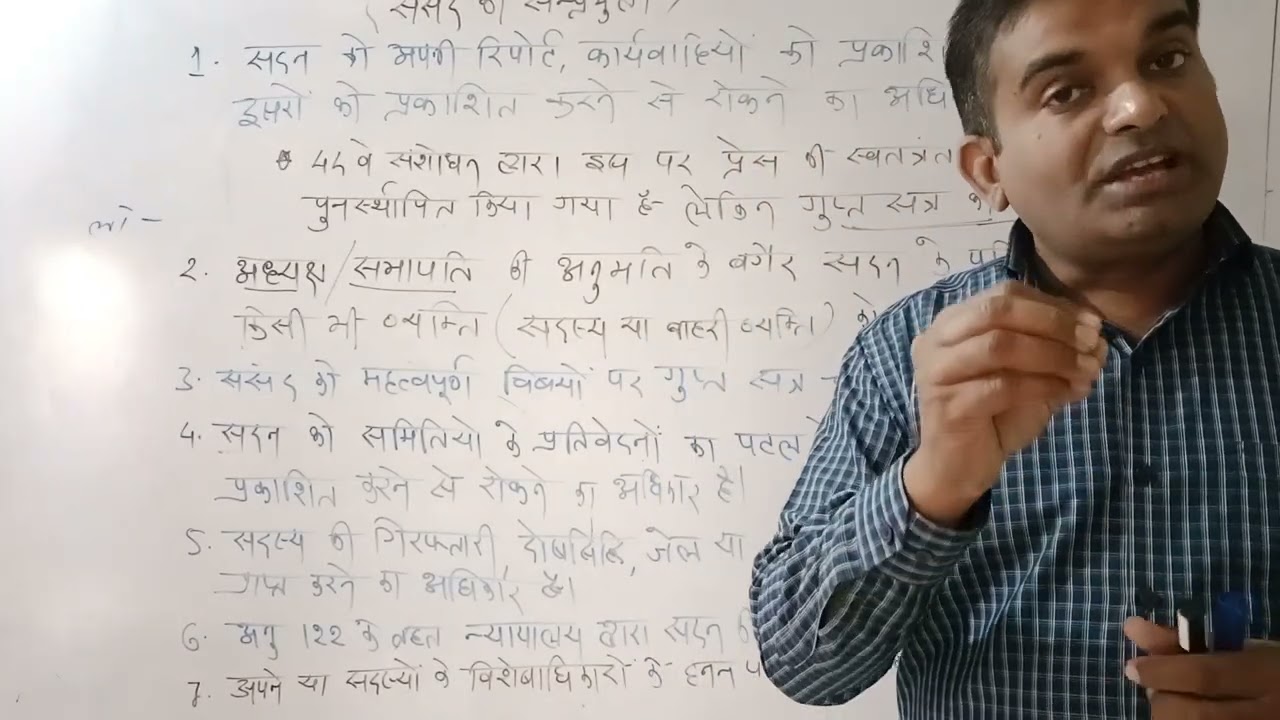 (संसद की सम्प्रभुता)
1. सदन को अपनी रिपोर्ट, कार्यवाहियों को प्रकाशि
दूसरों को प्रकाशित करने से रोकने का अधि
44 वे संशोधन द्वारा इस पर प्रेस की स्वतंत्रत
पुनर्स्थापित किया गया है- लेकिन गुप्त सत्र का
लो -
2. अध्यक्ष/सभापति की अनुमति के बगैर सदन के परि
किसी भी व्यक्ति (सदस्य या बाहरी व्यक्ति) को
3. संसद को महत्वपूर्ण विषयों पर गुप्त सत्र -
4. सदन को समितियो के प्रतिवेदनों का पटल
प्रकाशित करने से रोकने का अधिकार है।
5. सदस्य की गिरफ्तारी, दोषसिद्धि, जेल या
प्राप्त करने का अधिकार है।
6. अनु 122 के तहत न्यायालय द्वारा सदन की
7. अपने या सदस्यों के विशेषाधिकारों के हनन प